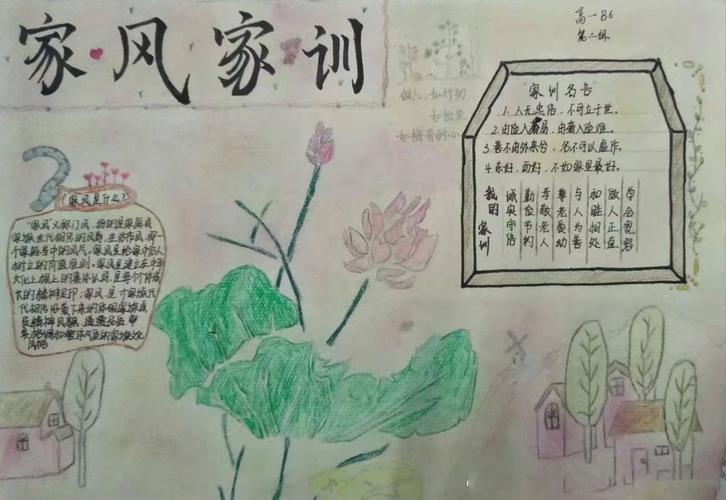 家风家训
高一B6
第二
做人,如竹韧
如松
如梅有耐心
"家训名言"
1.人无忠信,不可立于世。
2.由险入奢易,由奢入险难。
3.善不由外来兮,名不可以虚作。
4.东好,西好,不如家里最好。
我的家训
诚实守信
勤俭节约
孝敬老人
尊老爱幼
与人为善
和睦相处
做人正直
学会宽容
家风是什么?
"家风又称门风,指的是家庭或
家族世代相传的风尚、生活作风,即一个
家庭当中的风气。家风是给家中后人
树立的价值准则。家风是建立在中华
文化之根上的集体认同,是每个个体成
长的精神足印;家风是一个家族代
代相传沿袭下来的体现家族成
员精神风貌、道德品质、审
美格调和整体气质的家族文化
风格